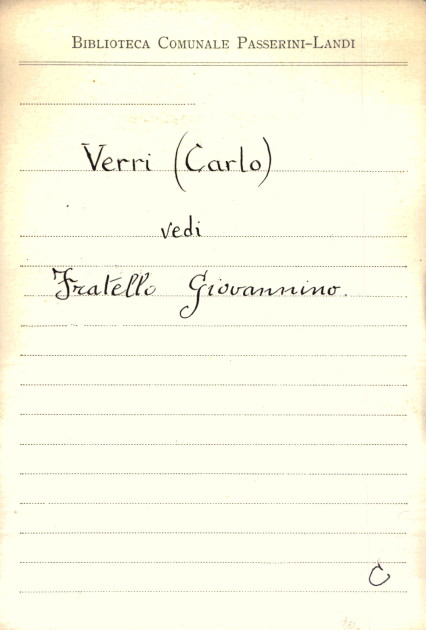 BIBLIOTECA COMUNALE PASSERINI-LANDI
Verri (Carlo)
vedi
Fratello Giovannino.
C